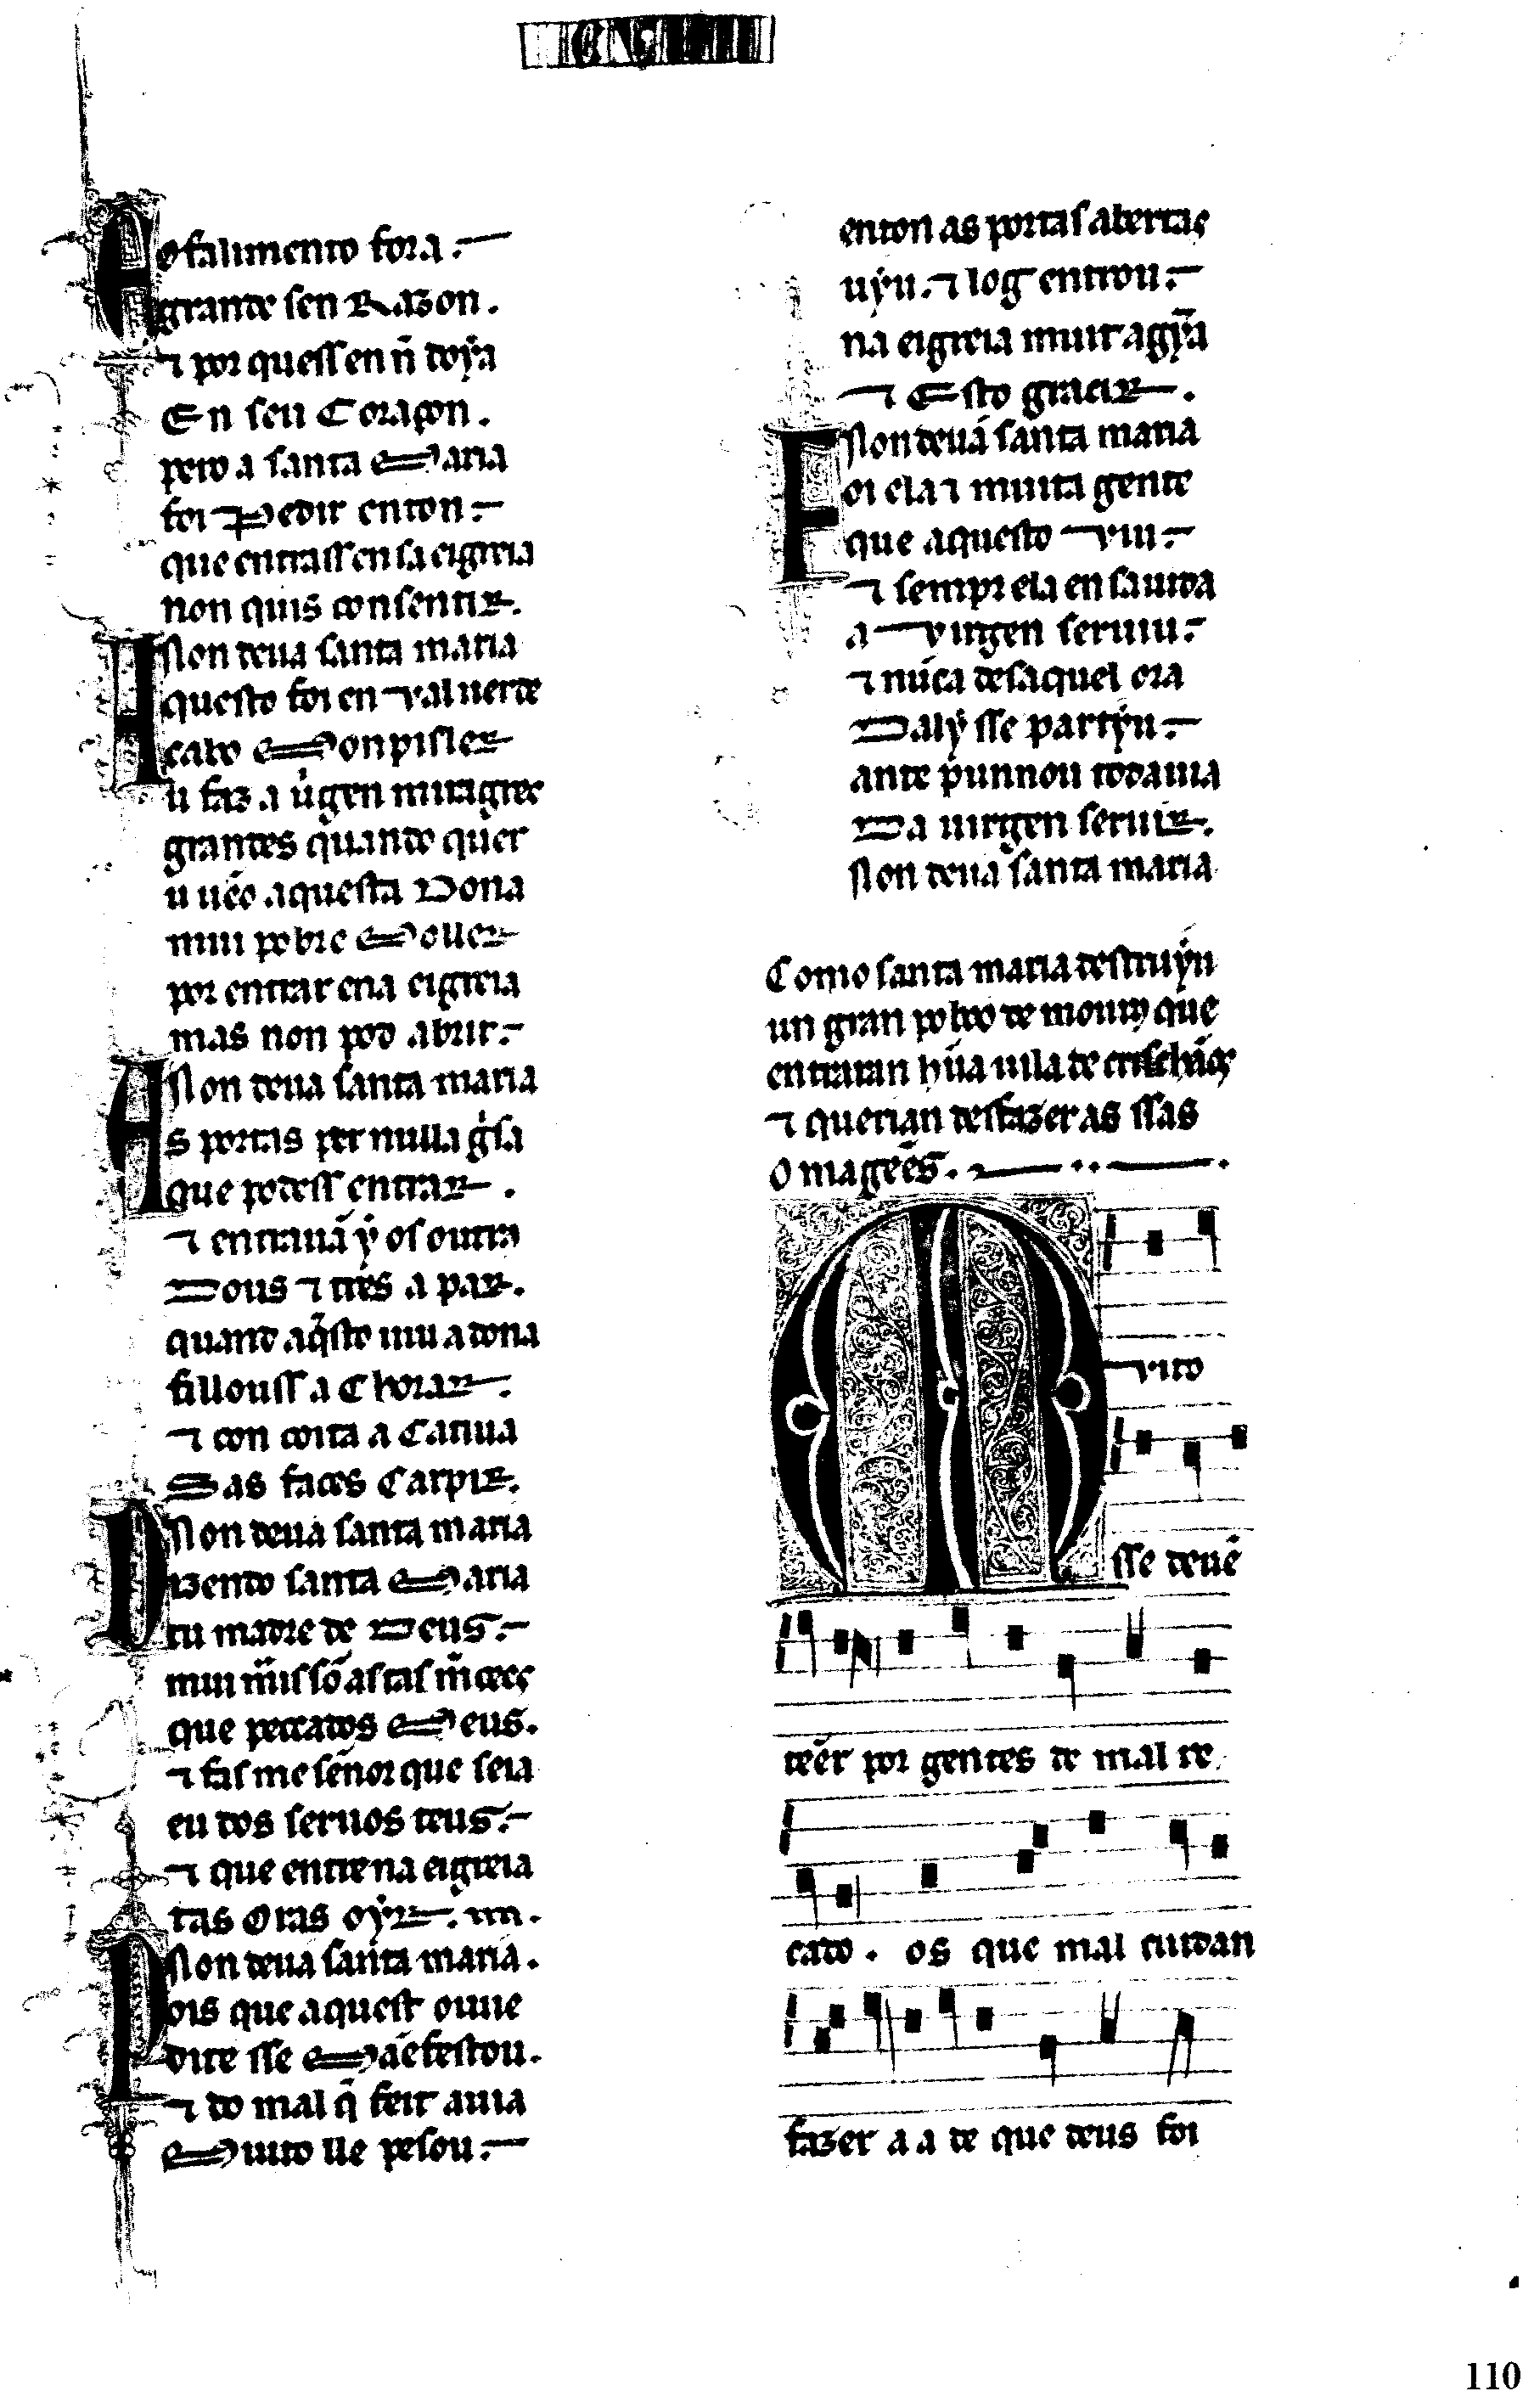 A o falimento fora.
grande sen Razon.
⁊ por quess en n̄ doýa
En seu Coraçon.
pero a santa Maria
foi Pedir enton.
que entrass en sa eigreia
non quis consentir.
Non deua santa maria
Aquesto foi en valuerde
cabo Monpisler
u faz a uirgen miragres
grandes quando quer
u uēo aquesta Dona
mui pobre Moller
por entrar ena eigreia
mas non pod abrir.
Non deua santa maria
As portas per nulla gisa
que podess entrar.
⁊ entrauā ý os outros
Dous ⁊ tres a par.
quand aq̄sto uiu a dona
fillouss a Chorar.
⁊ con coita a Catiua
Sas faces Carpir.
Non deua santa maria
Dizendo santa Maria
tu madre de Deus.
mui māis sō as tas m̄cees
que peccados Meus.
⁊ fas me sēnor que seia
eu dos seruos teus.
⁊ que entre na eigreia
tas Oras oýr.
Non deua santa maria.
Pois que aquest ouue
dite sse Māefestou.
⁊ do mal q̄ feit auia
Muito lle pesou.
enton as portas abertas
uýu. ⁊ log entrou.
na eigreia muit agỹa
⁊ Esto gracir.
Non deuā santa maria
Foi ela ⁊ muita gente
que aquesto viu.
⁊ sempr ela en sa uida
a virgen seruiu.
⁊ nūca des aquel ora
Dalý sse partýu.
ante punnou todauia
Da uirgen seruir.
Non deua santa maria
Como santa maria destruýu
un gran poboo de mouros que
entraran hūa uila de crischāos
⁊ querian desfazer as ssas
Omagēes.
Muito
sse deuē
tēer por gentes de mal re
cado. os que mal cuidan
fazer a a de que deus foi
110